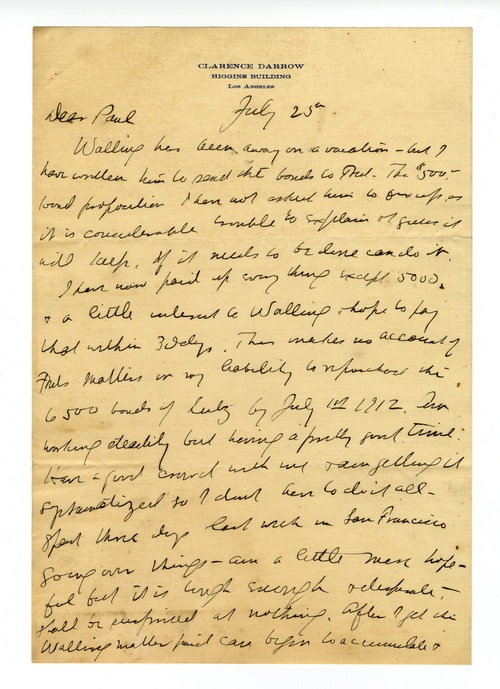 CLARENCE DARROW
HIGGINS BUILDING
LOS ANGELES
Dear Paul July 25th
Walling has been away on a vacation - but I
have written him to send the bonds to Fred. The $500-
bond proposition I have not asked him to as
it is considerable trouble to explain & guess it
will keep. If it needs to be done can do it.
I have now paid up everything except 5000.
& a little interest to Walling & hope to pay
that within 30 days. This makes no account of
Freds matters or my liability to repurchase the
6500 bonds of by July 1st 1912. Am
working steadily but having a pretty good time.
Have a good crowd with me & am getting it
systematized so I dont have to do it all -
Spent three days last week in San Francisco
going over things - am a little more hope-
ful but it is tough enough & desperate -
Shall be surprised at nothing. After I get the
Walling matter paid can begin to accumulate &